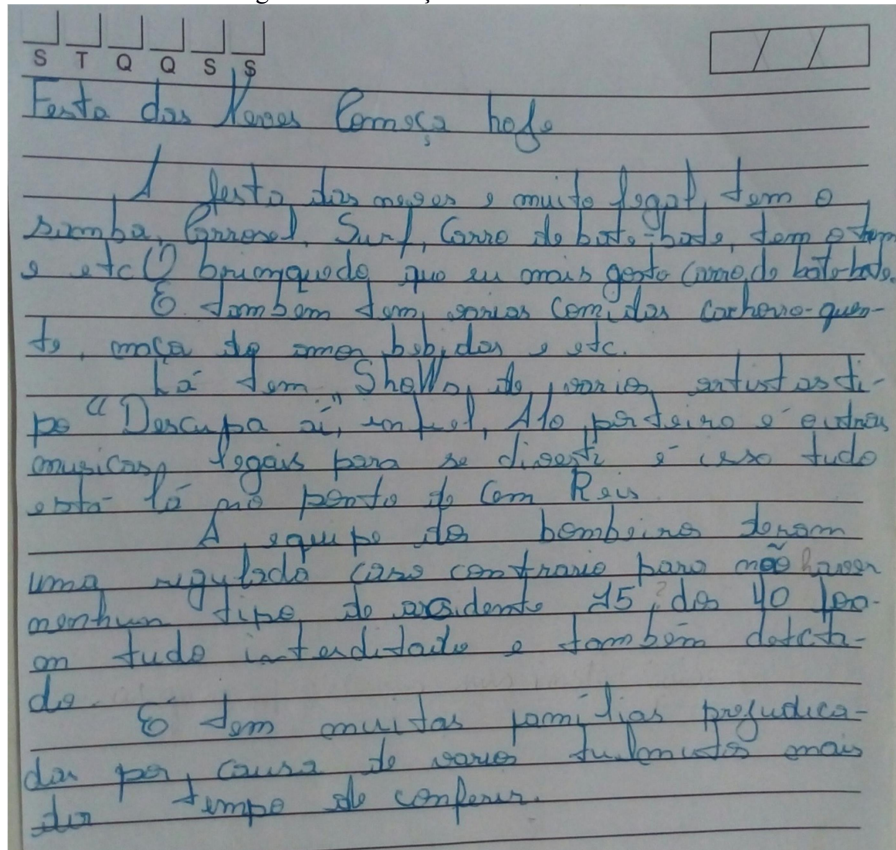 S T Q Q S S
Festa das Neves Começa hoje
A festa das neves e muito legal, tem o
samba, Carrosel, Surf, Carro de bate-bate, tem o trem
e etc O brinquedo que eu mais gosto Carro de bate-bate.
E também tem varias comidas cachorro-quen-
te, maça do amor, bebidas e etc.
Lá tem Shows de varios artistas ti-
po "Descupa aí", Alo porteiro e outras
musicas legais para se diverti e isso tudo
está lá no ponto de Cem Reis
A equipe dos bombeiros
uma regulada caso contrario para não haver
nenhum tipo de acidente 15 dos 40
tudo interditado e também
E tem muitas famílias prejudica-
das por causa de varios mais
tempo de conferir.